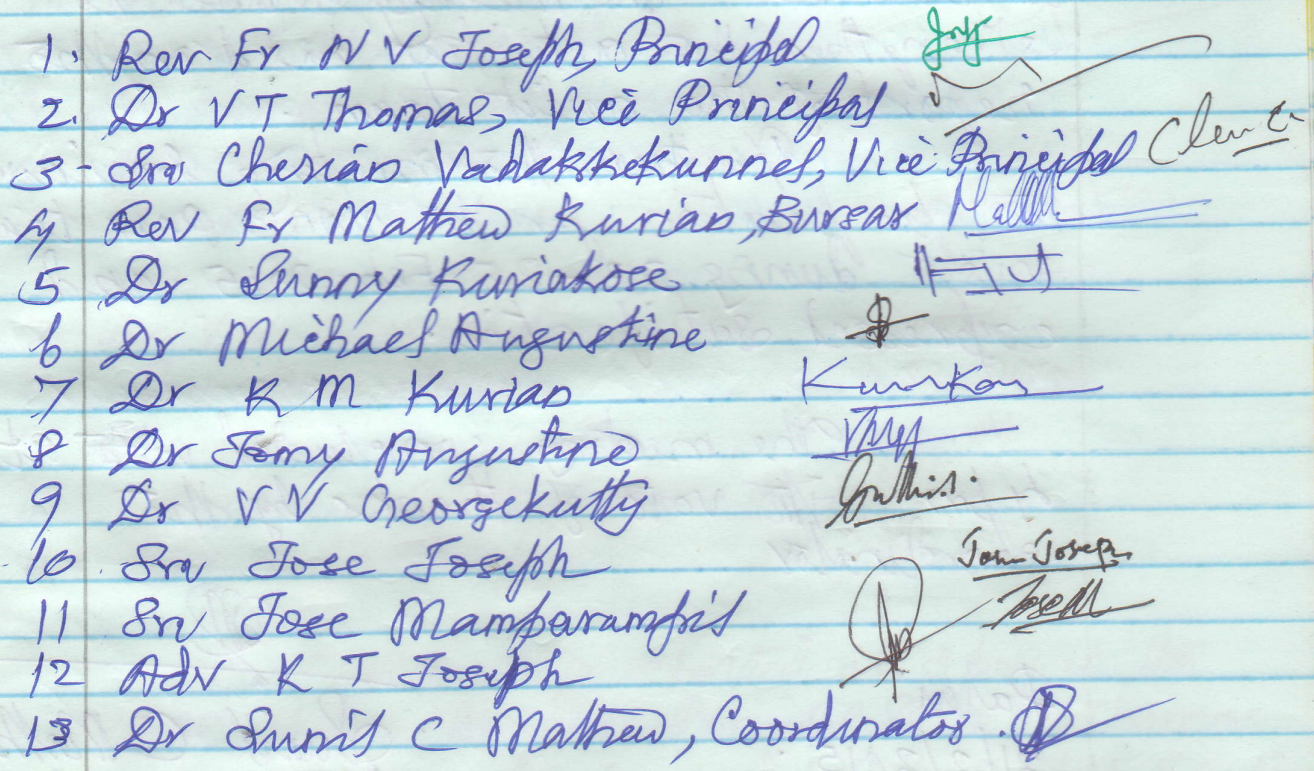 1. Rev Fr N V Joseph, Principal
2. Dr V T Thomas, Vice Principal
3- Sri Cherian Vadakkekunnel, Vice Principal
4 Rev Fr Mathew Kurian, Bursar
5 Dr Sunny Kuriakose
6 Dr Michael Augustine
7 Dr K M Kurian
8 Dr Jomy Augustine
9 Dr V V Georgekutty
10. Sri Jose Joseph
11 Sri Jose Mamparampil
12 Adv K T Joseph
13 Dr Sunil C Mathew, Coordinator.